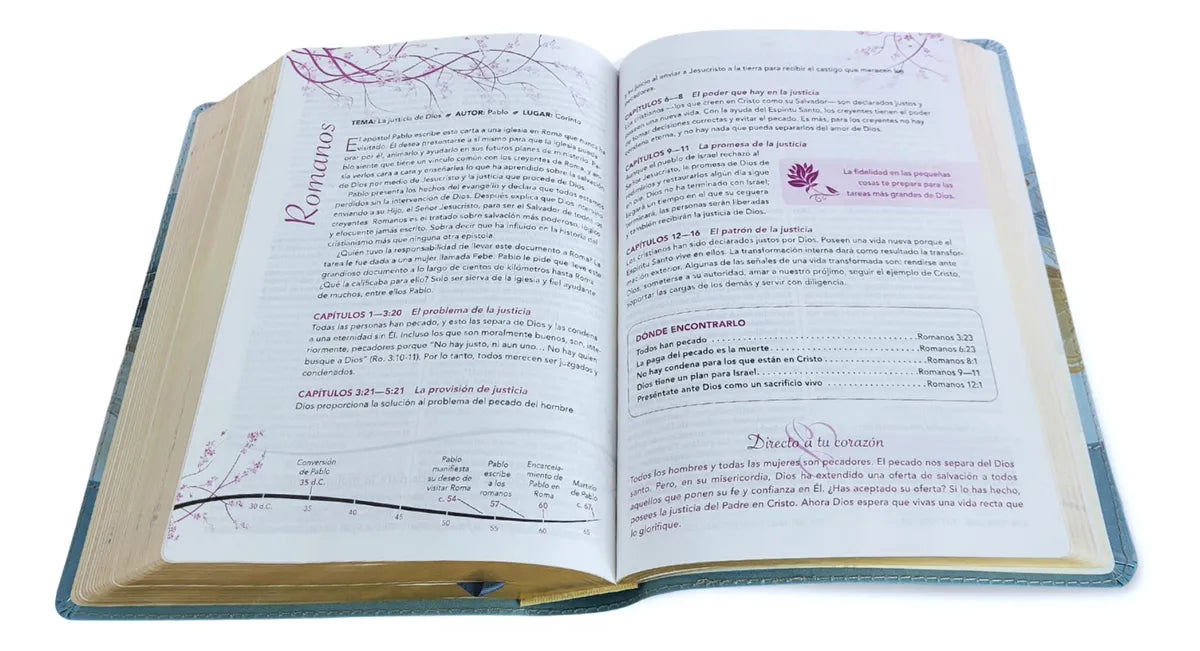 Romanos
TEMA: La justicia de Dios AUTOR: Pablo LUGAR: Corinto
El apóstol Pablo escribe esta carta a una iglesia en Roma que nunca ha
visitado. Él desea presentarse a sí mismo para que la iglesia pueda
orar por él, animarlo y ayudarlo en sus futuros planes de ministerio. Pa-
blo siente que tiene un vínculo común con los creyentes de Roma, y an-
sía verlos cara a cara y enseñarles lo que ha aprendido sobre la salvación
de Dios por medio de Jesucristo y la justicia que procede de Dios.
Pablo presenta los hechos del evangelio y declara que todos estamos
perdidos sin la intervención de Dios. Después explica que Dios intervino
enviando a su Hijo, el Señor Jesucristo, para ser el Salvador de todos los
creyentes. Romanos es el tratado sobre salvación más poderoso, lógico
y elocuente jamás escrito. Sobra decir que ha influido en la historia del
cristianismo más que ninguna otra epístola.
¿Quién tuvo la responsabilidad de llevar este documento a Roma? La
tarea le fue dada a una mujer llamada Febe. Pablo le pide que lleve este
grandioso documento a lo largo de cientos de kilómetros hasta Roma.
¿Qué la calificaba para ello? Solo ser sierva de la iglesia y fiel ayudante
de muchos, entre ellos Pablo.
CAPÍTULOS 1—3:20 El problema de la justicia
Todas las personas han pecado, y esto las separa de Dios y las condena
a una eternidad sin Él. Incluso los que son moralmente buenos, son, inte-
riormente, pecadores porque “No hay justo, ni aun uno... No hay quien
busque a Dios” (Ro. 3:10-11). Por lo tanto, todos merecen ser juzgados y
condenados.
CAPÍTULOS 3:21—5:21 La provisión de justicia
Dios proporciona la solución al problema del pecado del hombre
Conversión
de Pablo
35 d.C.
Pablo
manifiesta
su deseo de
visitar Roma
c. 54
Pablo
escribe
a los
romanos
57
Encarcela-
miento de
Pablo en
Roma
60
Martirio
de Pablo
c. 67
30 d.C. 35 40 45 50 55 60 65
y su juicio al enviar a Jesucristo a la tierra para recibir el castigo que merecen los
pecadores.
CAPÍTULOS 6—8 El poder que hay en la justicia
Los cristianos —los que creen en Cristo como su Salvador— son declarados justos y
poseen una nueva vida. Con la ayuda del Espíritu Santo, los creyentes tienen el poder
de tomar decisiones correctas y evitar el pecado. Es más, para los creyentes no hay
condena eterna, y no hay nada que pueda separarlos del amor de Dios.
CAPÍTULOS 9—11 La promesa de la justicia
Aunque el pueblo de Israel rechazó al
Señor Jesucristo, la promesa de Dios de
redimirlos y restaurarlos algún día sigue
en pie. Dios no ha terminado con Israel;
llegará un tiempo en el que su ceguera
terminará, las personas serán liberadas
y también recibirán la justicia de Dios.
La fidelidad en las pequeñas
cosas te prepara para las
tareas más grandes de Dios.
CAPÍTULOS 12—16 El patrón de la justicia
Los cristianos han sido declarados justos por Dios. Poseen una vida nueva porque el
Espíritu Santo vive en ellos. La transformación interna dará como resultado la transfor-
mación exterior. Algunas de las señales de una vida transformada son: rendirse ante
Dios, someterse a su autoridad, amar a nuestro prójimo, seguir el ejemplo de Cristo,
soportar las cargas de los demás y servir con diligencia.
DÓNDE ENCONTRARLO
Todos han pecado Romanos 3:23
La paga del pecado es la muerte Romanos 6:23
No hay condena para los que están en Cristo Romanos 8:1
Dios tiene un plan para Israel Romanos 9—11
Preséntate ante Dios como un sacrificio vivo Romanos 12:1
Directo a tu corazón
Todos los hombres y todas las mujeres son pecadores. El pecado nos separa del Dios
santo. Pero, en su misericordia, Dios ha extendido una oferta de salvación a todos
aquellos que ponen su fe y confianza en Él. ¿Has aceptado su oferta? Si lo has hecho,
posees la justicia del Padre en Cristo. Ahora Dios espera que vivas una vida recta que
lo glorifique.